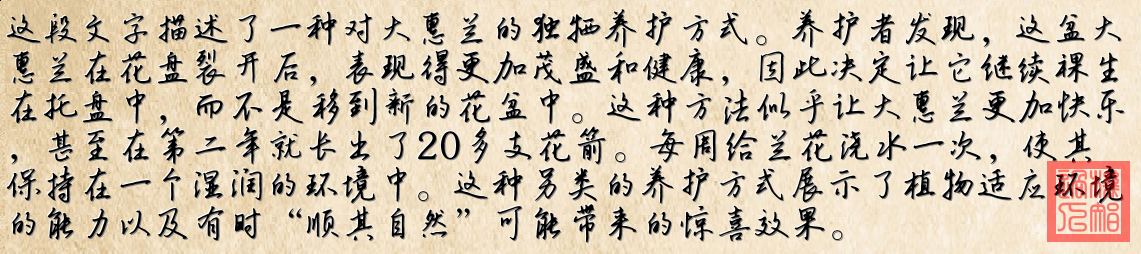 这段文字描述了一种对大蕙兰的独特养护方式。养护者发现，这盆大
蕙兰在花盘裂开后，表现得更加茂盛和健康，因此决定让它继续裸生
在托盘中，而不是移到新的花盆中。这种方法似乎让大蕙兰更加快乐
，甚至在第二年就长出了20多支花箭。每周给兰花浇水一次，使其
保持在一个湿润的环境中。这种另类的养护方式展示了植物适应环境
的能力以及有时“顺其自然”可能带来的惊喜效果。